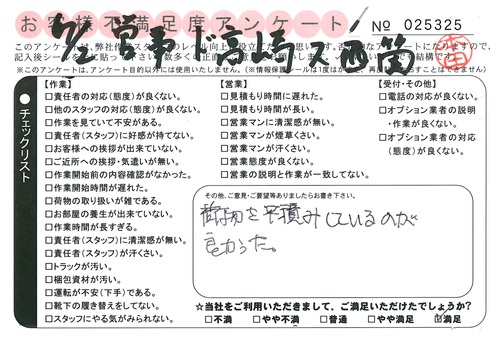 お客様不満足度アンケート
№ 025325
このアンケートは、弊社作業スタッフの
記入後シールを
※このアンケートは、アンケート目的以外には使用いたしません。(※情報保護シールは1度はがすと、再度貼ることはできません)
チェックリスト
【作業】
□責任者の対応(態度)が良くない。
□他のスタッフの対応(態度)が良くない。
□作業を見ていて不安がある。
□責任者(スタッフ)に好感が持てない。
□お客様への挨拶が出来ていない。
□ご近所への挨拶・気遣いが無い。
□作業開始前の内容確認がなかった。
□作業開始時間が遅れた。
□荷物の取り扱いが雑である。
□お部屋の養生が出来ていない。
□作業時間が長すぎる。
□責任者(スタッフ)に清潔感が無い。
□責任者(スタッフ)が汗くさい。
□トラックが汚い。
□梱包資材が汚い。
□運転が不安(下手)である。
□靴下の履き替えをしてない。
□スタッフにやる気がみられない。
【営業】
□見積もり時間に遅れた。
□見積もり時間が長い。
□営業マンに清潔感が無い。
□営業マンが煙草くさい。
□営業マンが汗くさい。
□営業態度が良くない。
□営業の説明と作業が一致してない。
【受付・その他】
□電話の対応が良くない。
□オプション業者の説明
・作業が良くない。
□オプション業者の対応
(態度)が良くない。
その他、ご意見・ご要望等ありましたらお書き下さい。
荷物を平積みしているのが
良かった。
★当社をご利用いただきまして、ご満足いただけたでしょうか?
□不満 □やや不満 □普通 □やや満足 ☑満足